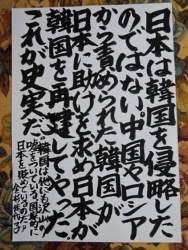 日本は韓国を侵略した
のではない中国やロシア
から責められた韓国が
日本に助けを求め日本が
韓国を再建してやった
これが史実だ
韓国は他にも沢山の
嘘をついている、
日本を貶めているのだ